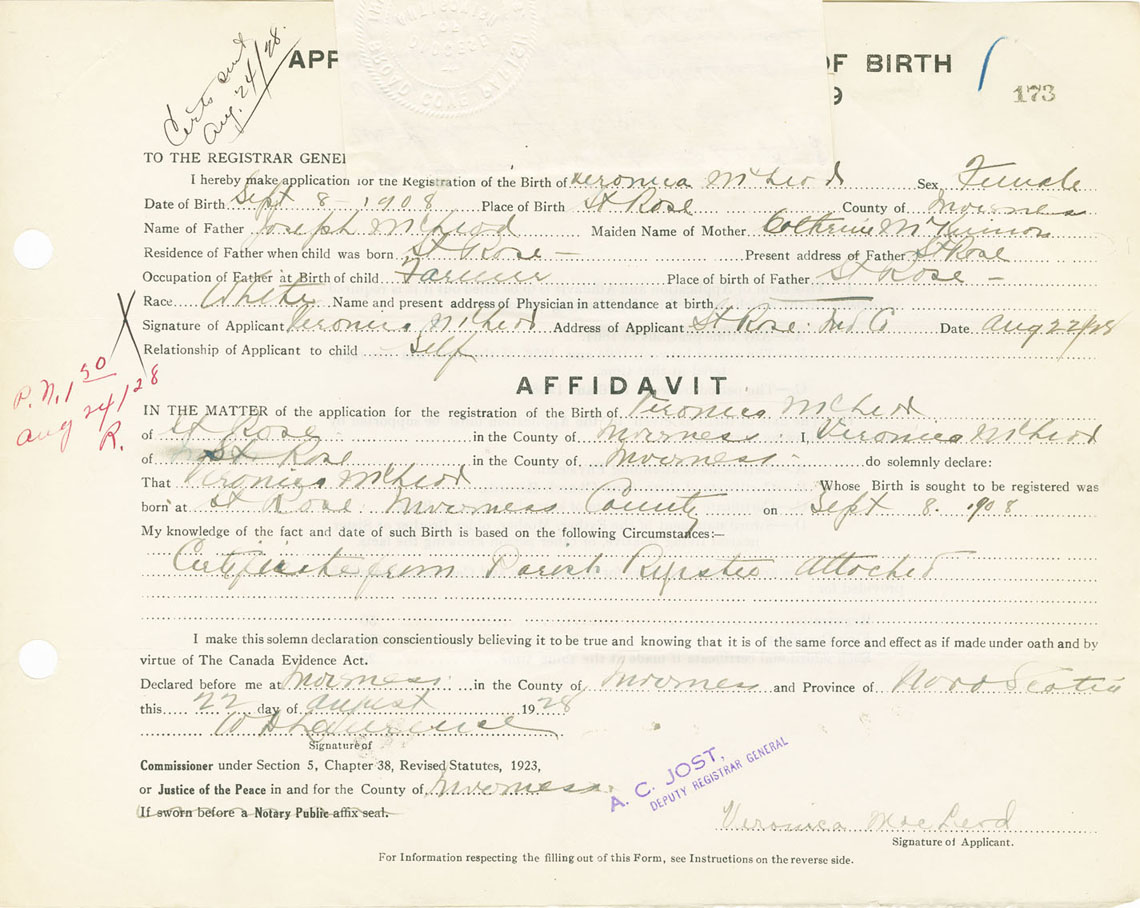 Certs sent
Aug. 24/28.
APP OF BIRTH
9 173
TO THE REGISTRAR GENE
I hereby make application for the Registration of the Birth of Veronica McLeod Sex Female
Date of Birth Sept 8 - 1908 Place of Birth St Rose County of Inverness
Name of Father Joseph McLeod Maiden Name of Mother Catherine McKinnon
Residence of Father when child was born St Rose - Present address of Father St Rose
Occupation of Father at Birth of child Farmer Place of birth of Father St Rose -
Race White Name and present address of Physician in attendance at birth
Signature of Applicant Veronica McLeod Address of Applicant St Rose. Inv. Co Date Aug 22/28
Relationship of Applicant to child Self
P.N. 1 50
Aug 24/28
R.
AFFIDAVIT
IN THE MATTER of the application for the registration of the Birth of Veronica McLeod
of St Rose in the County of Inverness I, Veronica McLeod
of St Rose in the County of Inverness do solemnly declare:
That Veronica McLeod Whose Birth is sought to be registered was
born at St Rose Inverness County on Sept 8. 1908
My knowledge of the fact and date of such Birth is based on the following Circumstances:—
Certificate from Parish Register Attached
I make this solemn declaration conscientiously believing it to be true and knowing that it is of the same force and effect as if made under oath and by
virtue of The Canada Evidence Act.
Declared before me at Inverness in the County of Inverness and Province of Nova Scotia
this 22 day of August 1928
W D Lawrence
Signature of
Commissioner under Section 5, Chapter 38, Revised Statutes, 1923,
or Justice of the Peace in and for the County of Inverness.
If sworn before a Notary Public affix seal.
A. C. JOST,
DEPUTY REGISTRAR GENERAL
Veronica MacLeod
Signature of Applicant.
For Information respecting the filling out of this Form, see Instructions on the reverse side.